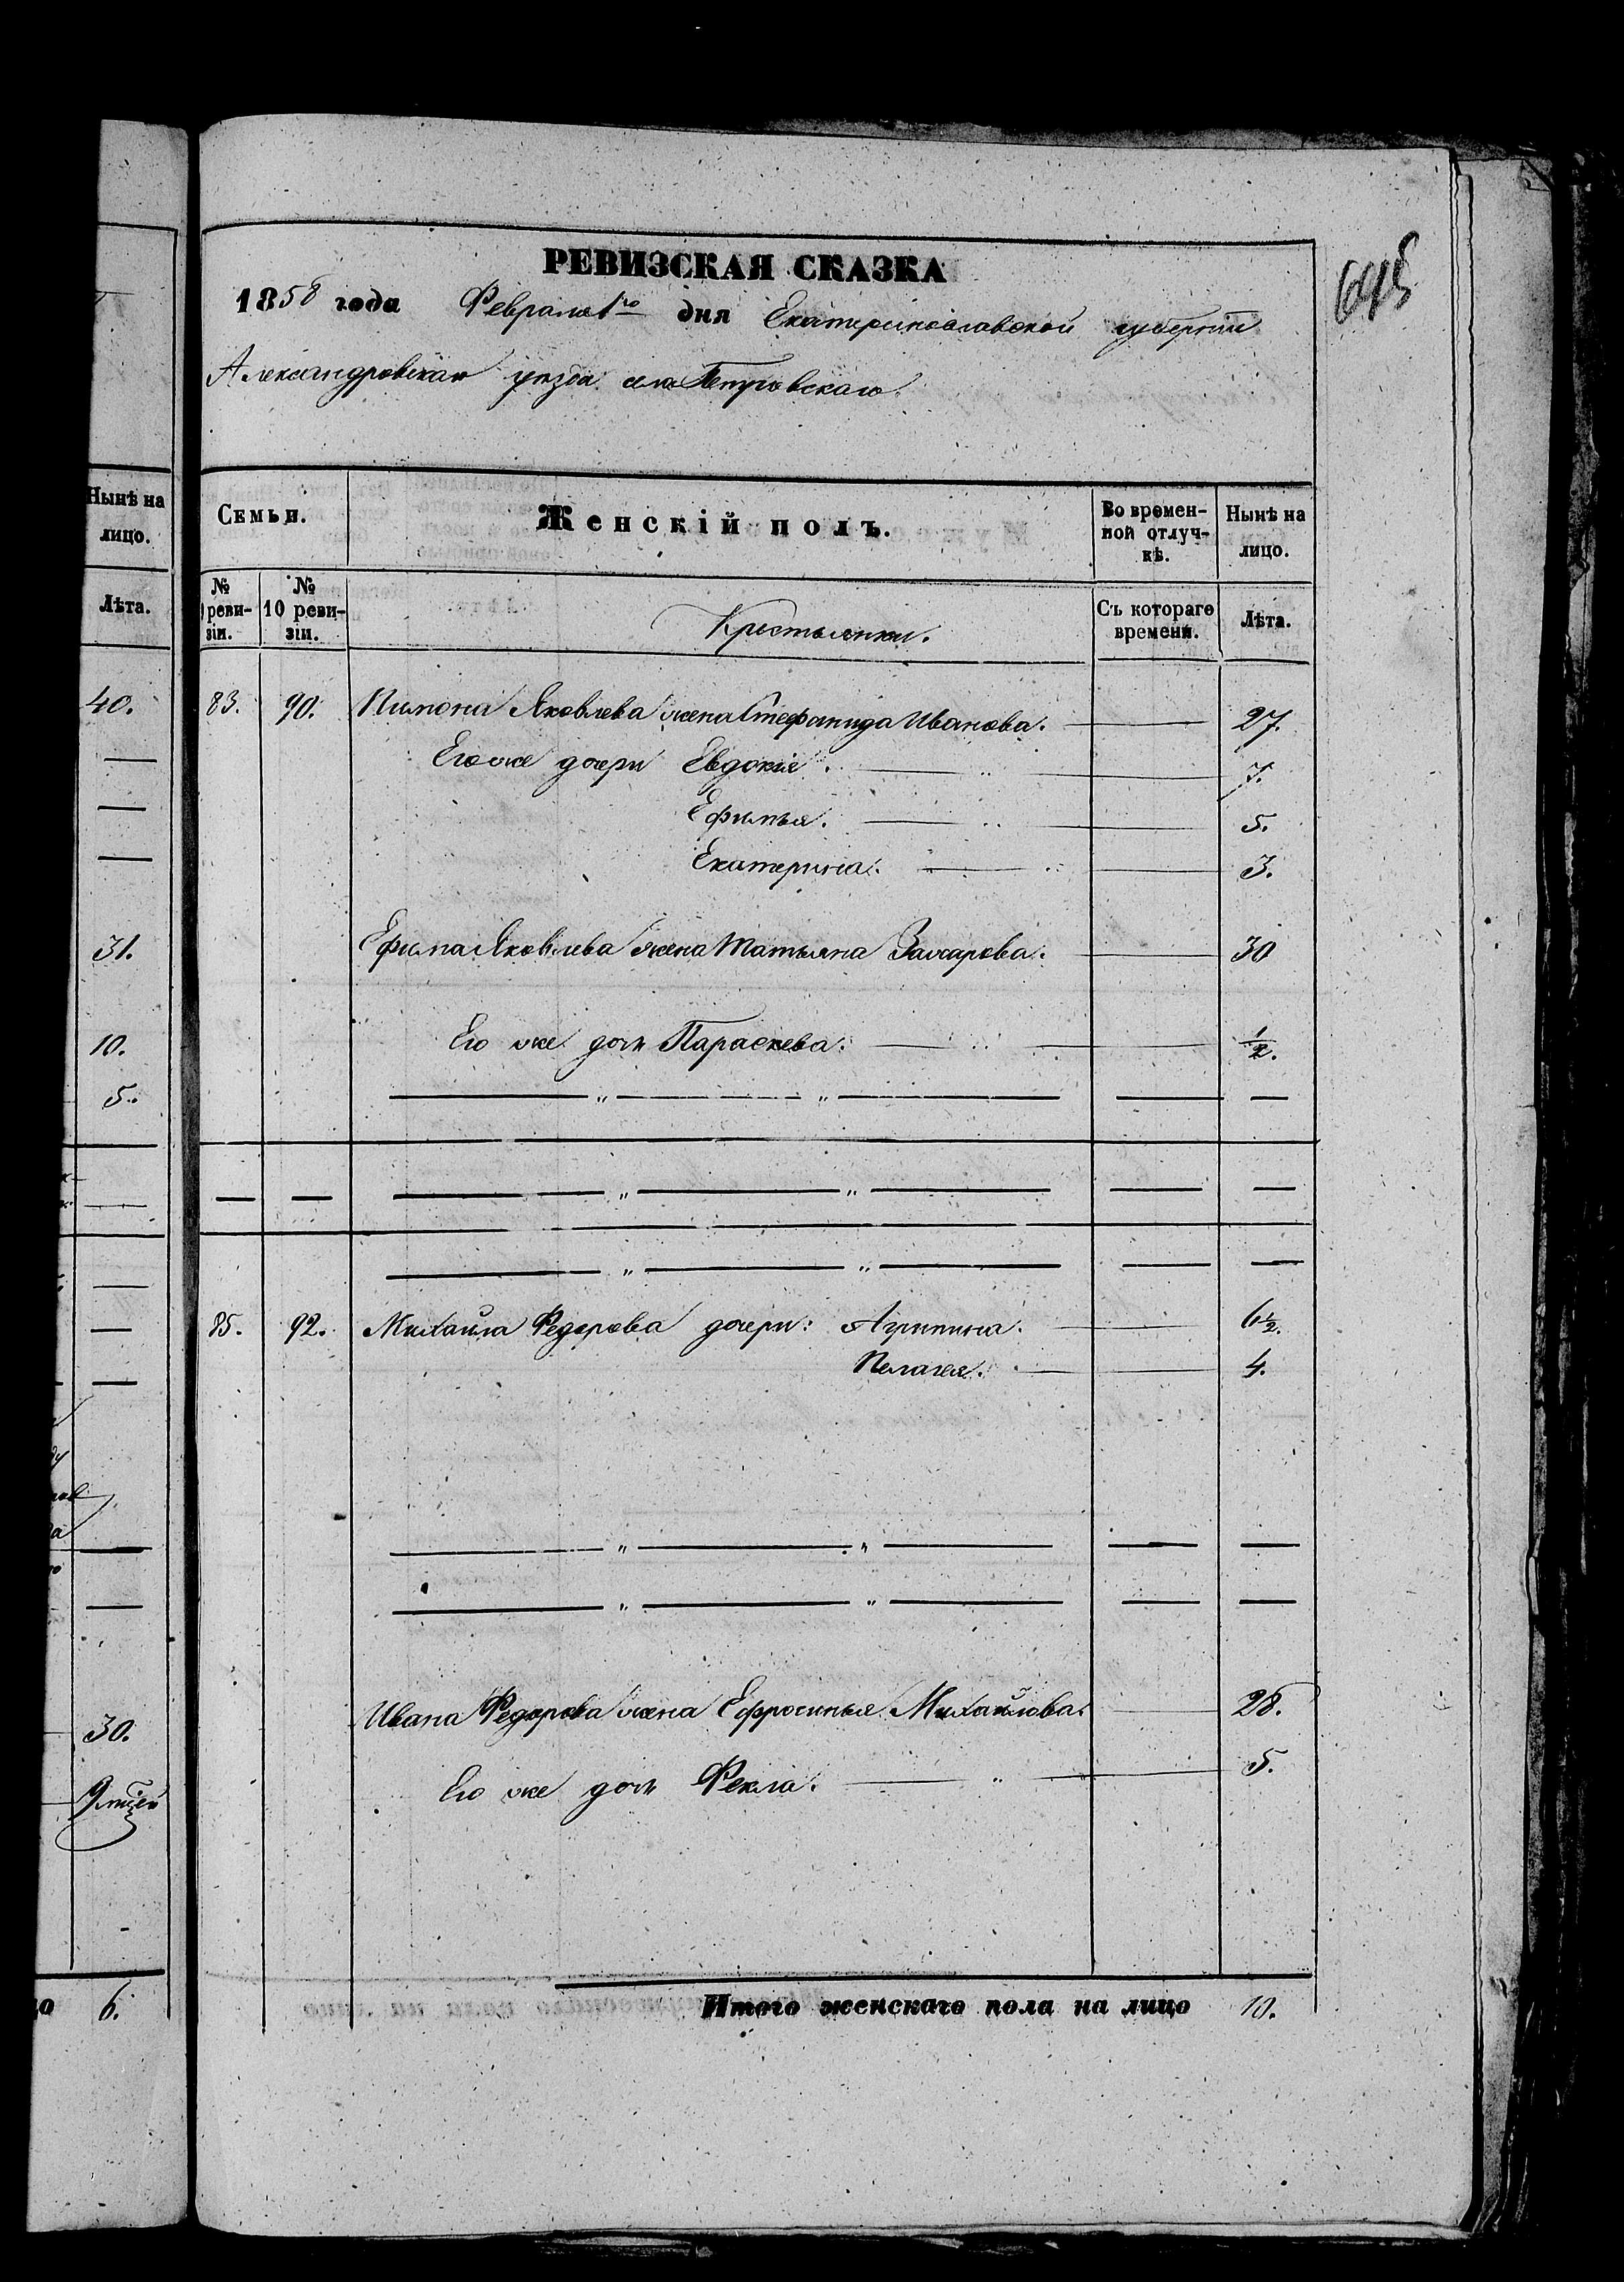 645
РЕВИЗСКАЯ СКАЗКА
1858 года Февраля 1го дня Екатеринославской губерніи
Александровскаго уѣзда села Петровскаго.
Нынѣ на лицо.
Лѣта.
40.
31.
10.
5.
30.
9 мцев
6.
Семьи.
Женскій полъ.
Во времен-
ной отлуч-
кѣ.
Нынѣ на
лицо.
№ реви-
зіи.
№ 10 реви-
зіи.
Крестьянки.
Съ котораго
времени.
Лѣта.
83. 90. Пимона Яковлева жена Стефанида Иванова. 27.
Его же дочери Евдокія. 7.
Ефимья. 5.
Екатерина. 3.
Ефима Яковлева жена Татьяна Захарова. 30
Его же дочь Параскева. 1/2.
85. 92. Михайла Федорова дочери: Агрипина. 6 1/2.
Пелагея. 4.
Ивана Федорова жена Ефросинья Михайлова. 28.
Его же дочь Фекла. 5.
Итого женскаго пола на лицо 10.